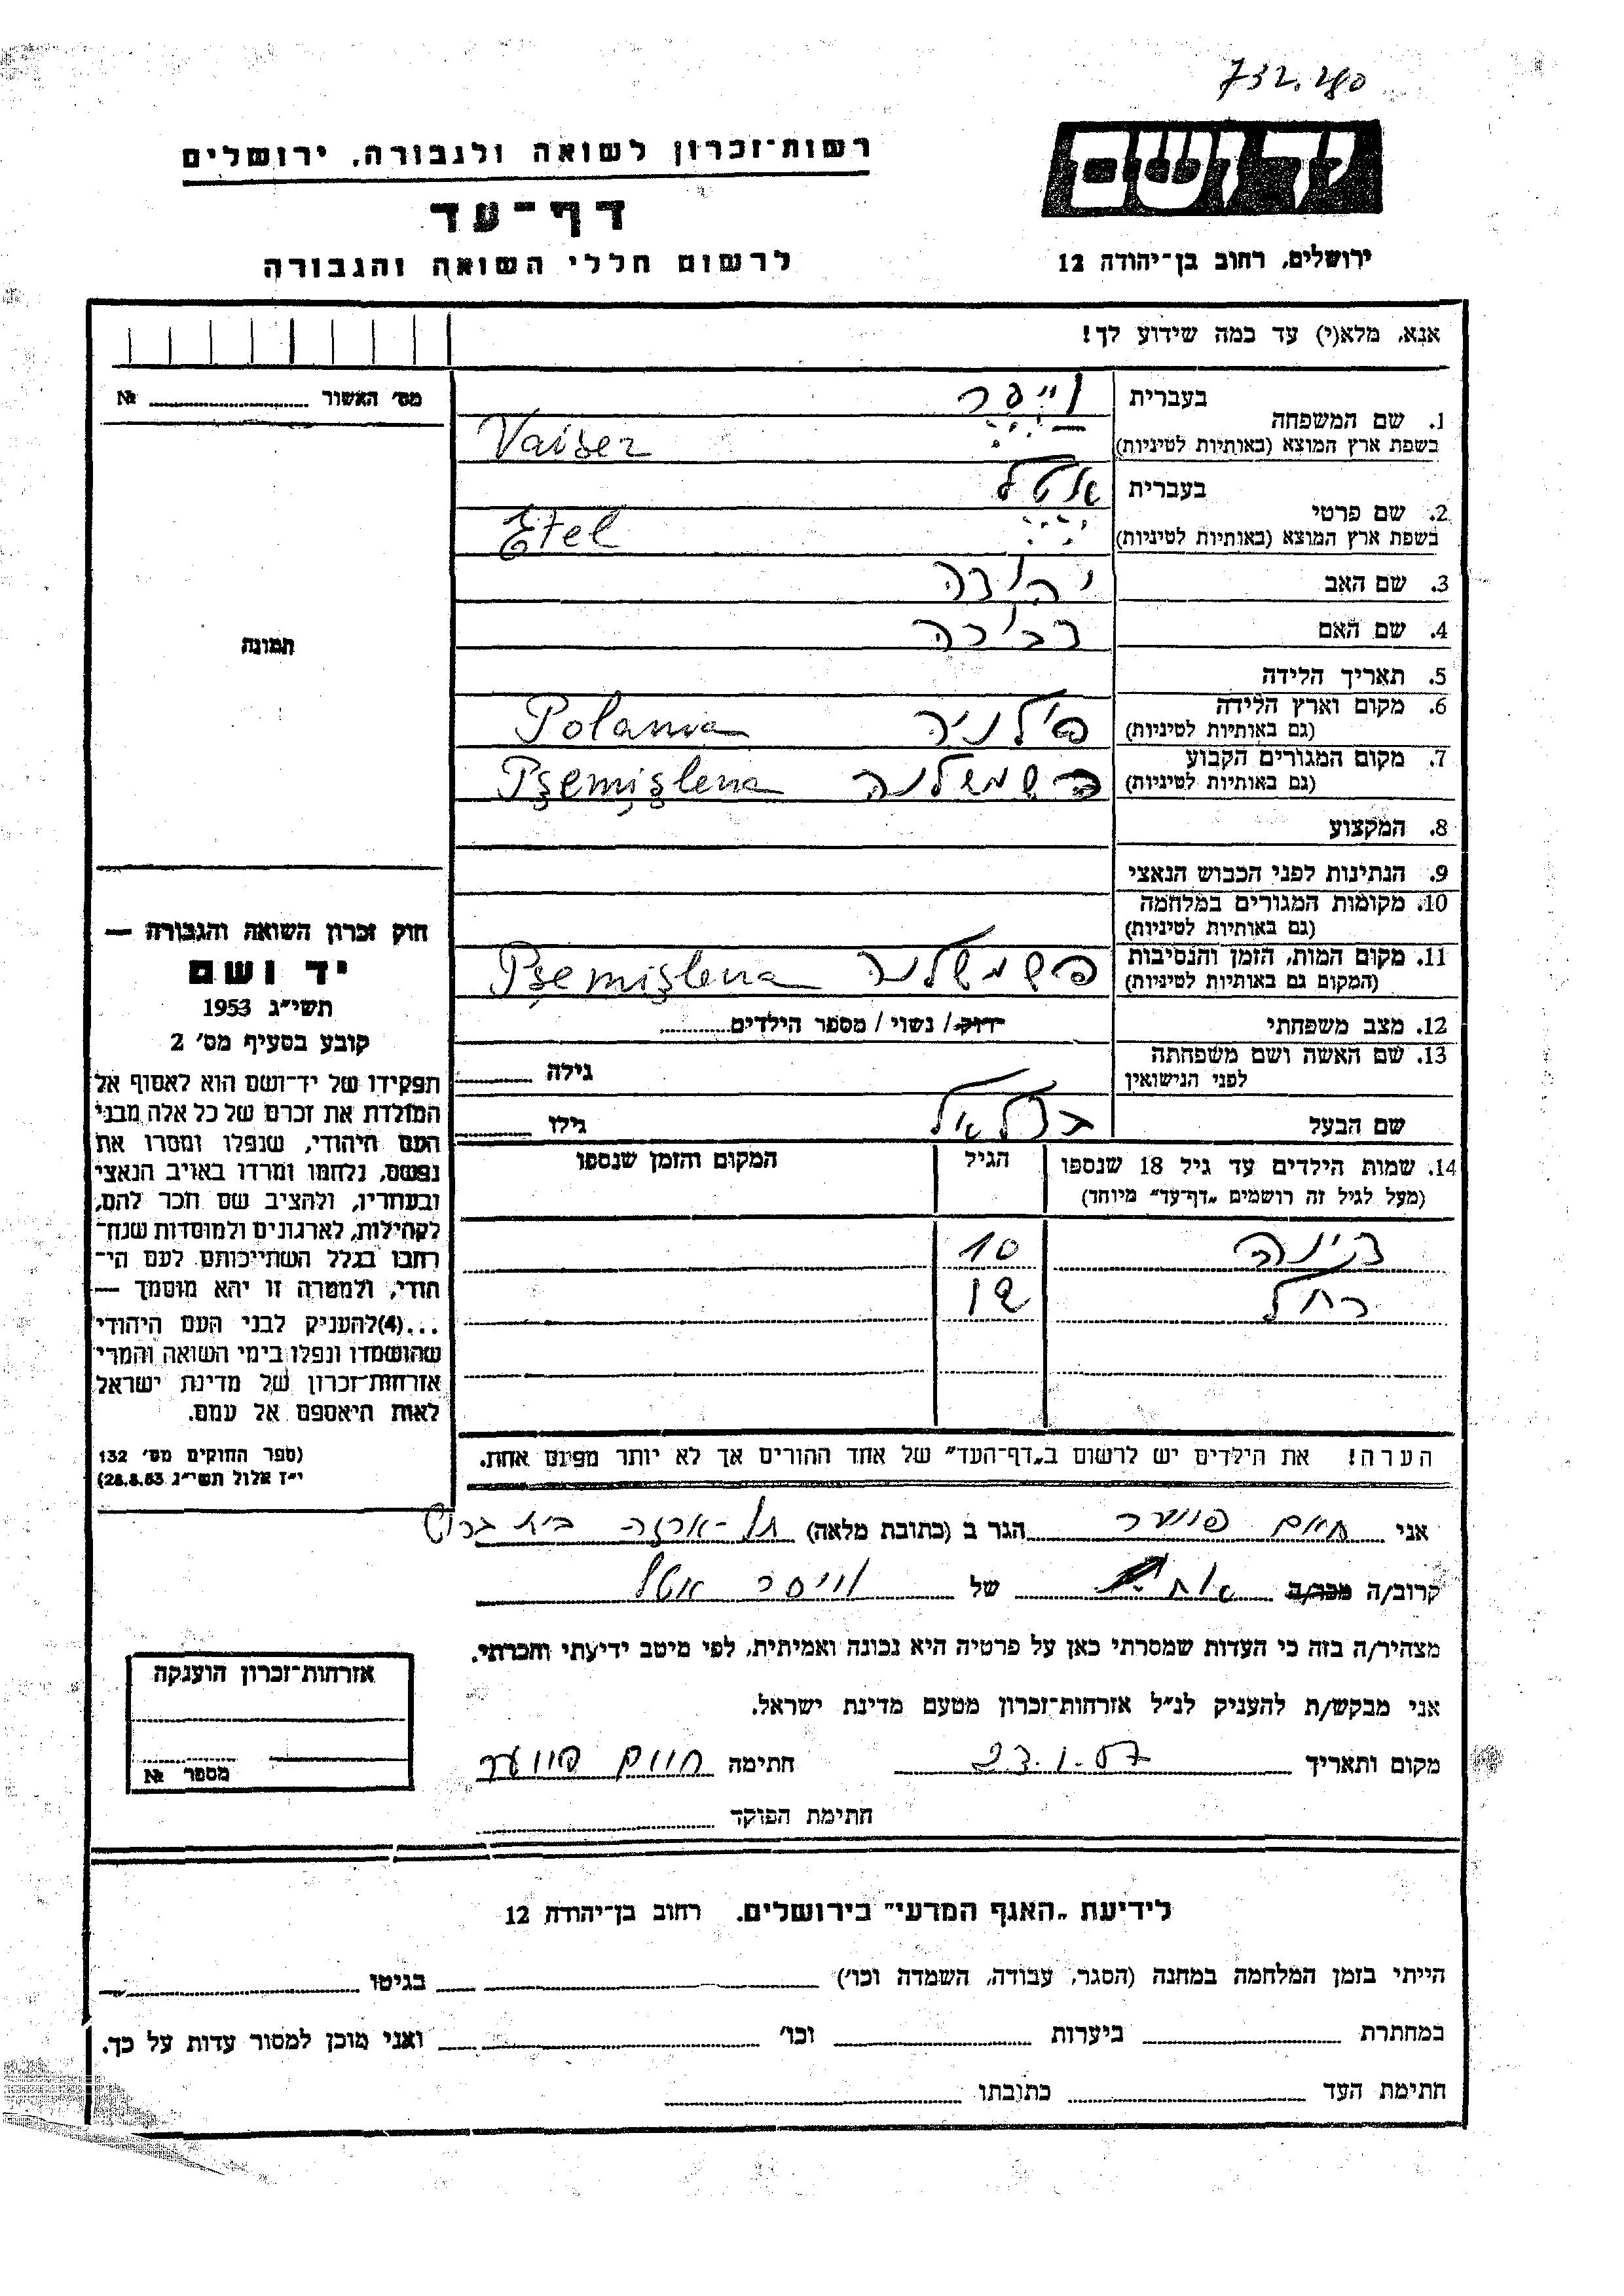 732.280
יד ושם
רשות־זכרון לשואה ולגבורה, ירושלים
דף־עד
ירושלים, רחוב בן־יהודה 12
לרשום חללי השואה והגבורה
אנא, מלא(י) עד כמה שידוע לך!
מס' האשור № 
1. שם המשפחה בעברית וייסר
בשפת ארץ המוצא (באותיות לטיניות) Vaiser
2. שם פרטי בעברית אטל
בשפת ארץ המוצא (באותיות לטיניות) Etel
3. שם האב יהודה
4. שם האם דבורה
תמונה
5. תאריך הלידה
6. מקום וארץ הלידה (גם באותיות לטיניות) פולניה Polania
7. מקום המגורים הקבוע (גם באותיות לטיניות) פשמשלנה Pşemişlena
8. המקצוע
9. הנתינות לפני הכבוש הנאצי
10. מקומות המגורים במלחמה (גם באותיות לטיניות)
11. מקום המות, הזמן והנסיבות (המקום גם באותיות לטיניות) פשמשלנה Pşemişlena
12. מצב משפחתי רווק / נשוי / מספר הילדים
13. שם האשה ושם משפחתה לפני הנישואין גילה
שם הבעל בצלאל גילו
14. שמות הילדים עד גיל 18 שנספו הגיל המקום והזמן שנספו
(מעל לגיל זה רושמים "דף־עד" מיוחד)
דינה 10
רחל 12
הערה! את הילדים יש לרשום ב"דף־העד" של אחד ההורים אך לא יותר מפעם אחת.
חוק זכרון השואה והגבורה —
יד ושם
תשי"ג 1953
קובע בסעיף מס' 2
תפקידו של יד־ושם הוא לאסוף אל
המולדת את זכרם של כל אלה מבני
העם היהודי, שנפלו ומסרו את
נפשם, נלחמו ומרדו באויב הנאצי
ובעוזריו, ולהציב שם וזכר להם,
לקהילות, לארגונים ולמוסדות שנח־
רבו בגלל השתייכותם לעם הי־
הודי, ולמטרה זו יהא מוסמך —
...(4) להעניק לבני העם היהודי
שהושמדו ונפלו בימי השואה והמרי
אזרחות־זכרון של מדינת ישראל
לאות היאספם אל עמם.
(ספר החוקים מס' 132
י"ז אלול תשי"ג 28.8.53)
אני חיים הגר ב (כתובת מלאה) תל-ארזה בית
קרוב/ה מכר/ה של וייסר אטל
מצהיר/ה בזה כי העדות שמסרתי כאן על פרטיה היא נכונה ואמיתית, לפי מיטב ידיעתי והכרתי.
אני מבקש/ת להעניק לנ"ל אזרחות־זכרון מטעם מדינת ישראל.
מקום ותאריך 23.1.57 חתימה חיים
חתימת הפוקד
אזרחות־זכרון הוענקה
מספר №
לידיעת "האגף המדעי" בירושלים, רחוב בן־יהודה 12
הייתי בזמן המלחמה במחנה (הסגר, עבודה, השמדה וכו') בגיטו
במחתרת ביערות וכו' ואני מוכן למסור עדות על כך.
חתימת העד כתובתו